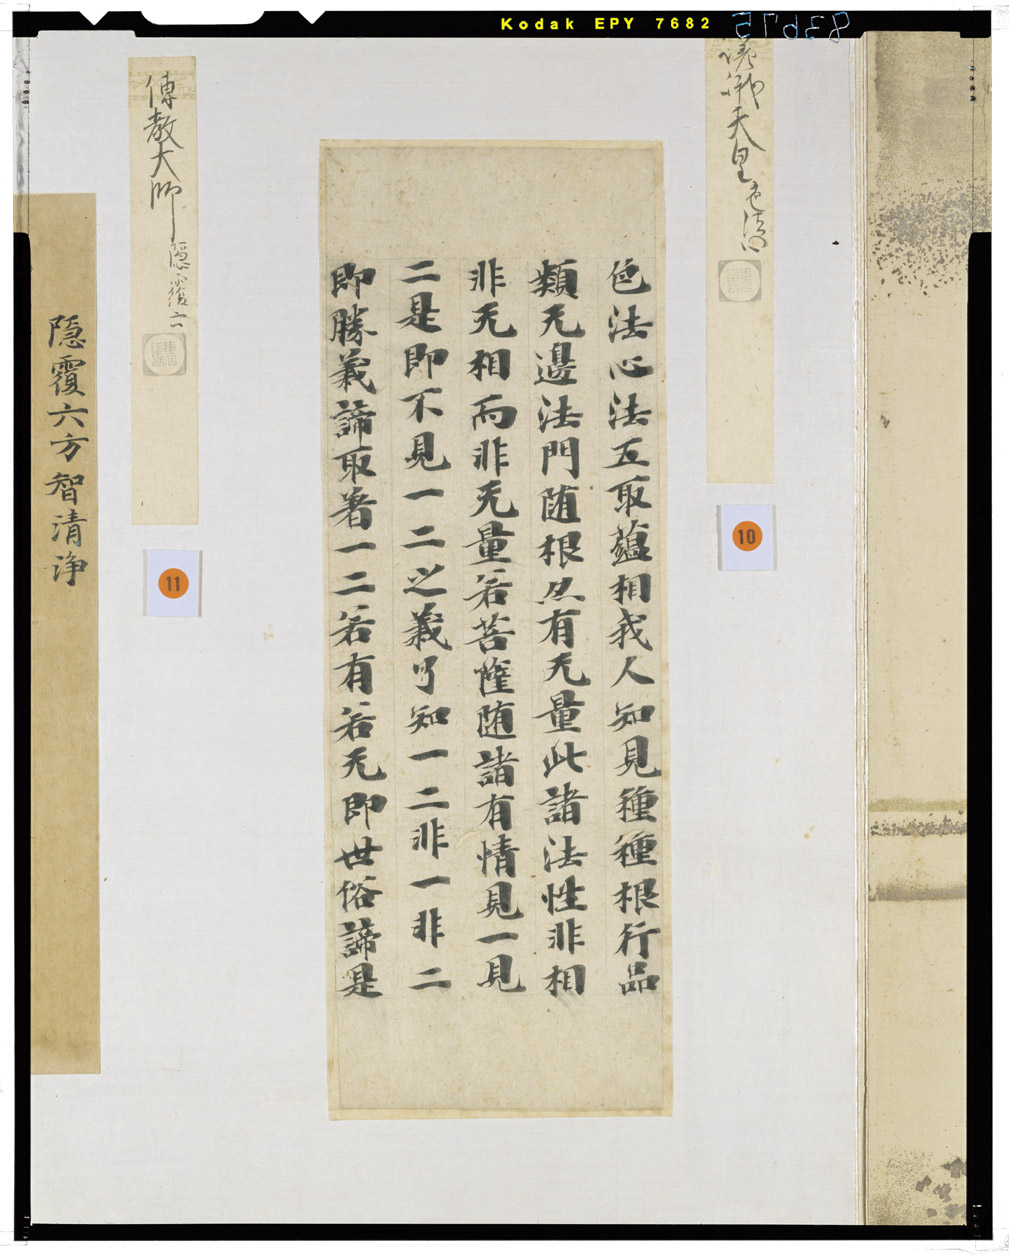 Kodak EPY 7682
83675
嵯峨天皇 色法心
10
色法心法五取蘊相我人知見種種根行品
類无邊法門随根然有无量此諸法性非相
非无相而非无量若菩薩随諸有情見一見
二是即不見一二之義了知一二非一非二
即勝義諦取著一二若有若无即世俗諦是
傳教大師 隠覆六
11
隠覆六方智清浄